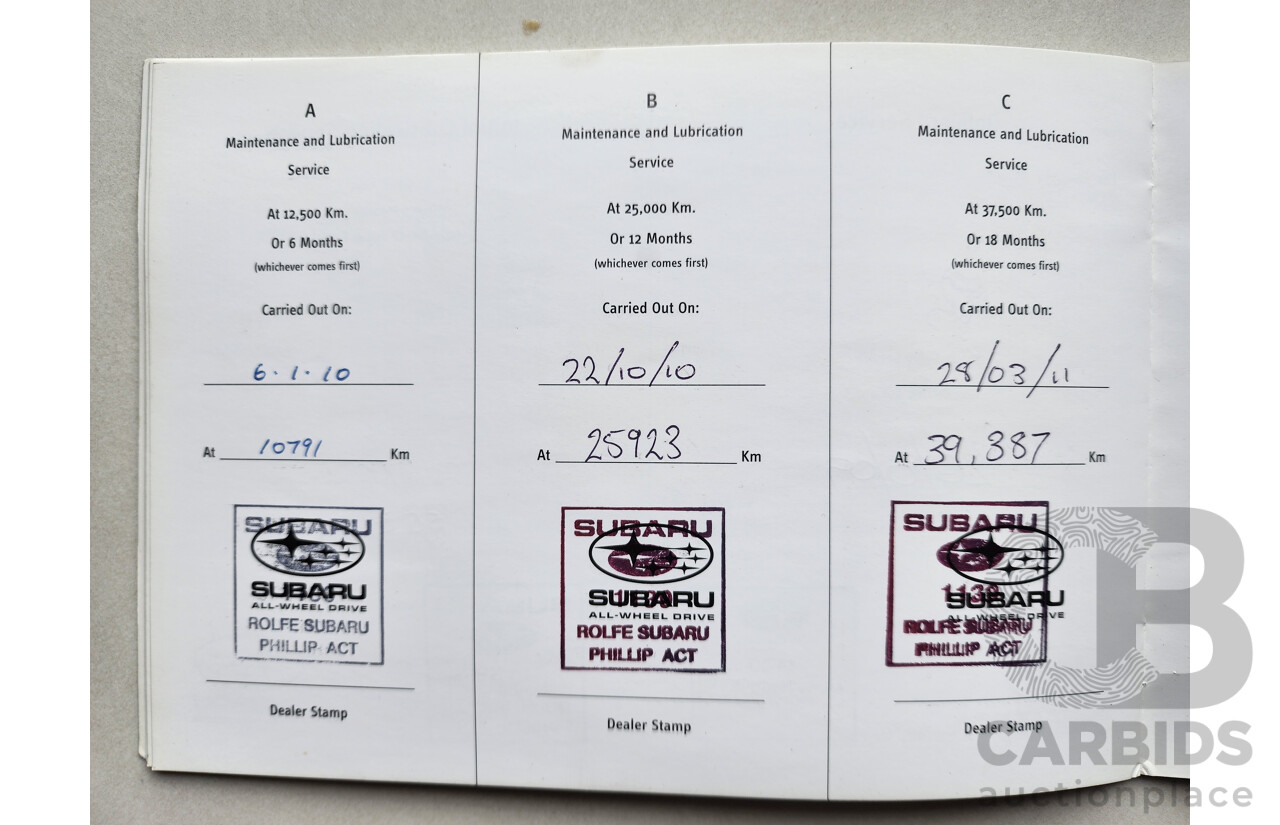 A
Maintenance and Lubrication
Service
At 12,500 Km.
Or 6 Months
(whichever comes first)
Carried Out On:
6.1.10
At 10791 Km
SUBARU
SUBARU
ALL-WHEEL DRIVE
ROLFE SUBARU
PHILLIP ACT
Dealer Stamp
B
Maintenance and Lubrication
Service
At 25,000 Km.
Or 12 Months
(whichever comes first)
Carried Out On:
22/10/10
At 25923 Km
SUBARU
SUBARU
ALL-WHEEL DRIVE
ROLFE SUBARU
PHILLIP ACT
Dealer Stamp
C
Maintenance and Lubrication
Service
At 37,500 Km.
Or 18 Months
(whichever comes first)
Carried Out On:
28/03/11
At 39,387 Km
SUBARU
SUBARU
ALL-WHEEL DRIVE
ROLFE SUBARU
PHILLIP ACT
Dealer Stamp
CARBIDS
auctionplace